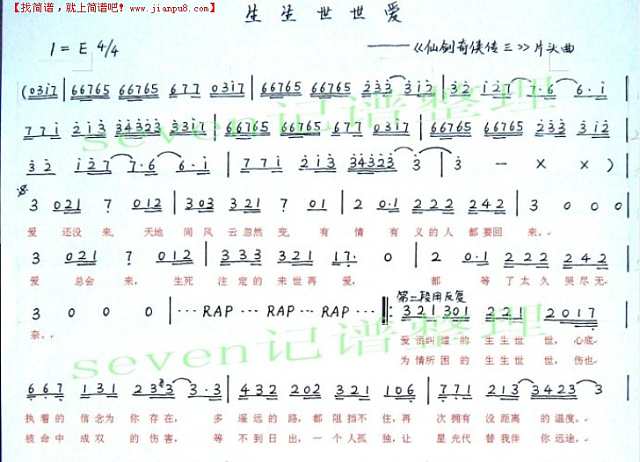 【找简谱,就上简谱吧!www.jianpu8.com】
生生世世爱
1=E 4/4
——《仙剑奇侠传三》片头曲
(0317 | 66765 66765 677 0317 | 66765 66765 233 317 | 32 127 7·6 6·1 |
771 213 34323 3317 | 66765 66765 677 0317 | 66765 66765 233 317 |
32 127 7·6 6·1 | 771 213 34323 3 | 3 — × × )
3 021 7 012 | 303 321 7 021 | 2 0·1 222 242 | 3 0 0 0
爱 还没来,天地 间风 云忽然 变, 有 情 有 义的人 都要回 来。
3 021 7 012 | 333 321 17· 0 | 2 01 222 242
爱 总会 来, 生死 注定的 来世再 爱, 都 等了太久 哭尽无
3 0 0 0 | ··· RAP ··· RAP ··· RAP ··· ‖: 321 301 221 2017
奈。
第二段用反复
爱恨纠缠的 生生 世 世,心底
为情所困的 生生 世 世,伤也
667 131 233 3·3 | 432 202 321 106 | 771 213 3423 3
执着的 信念为 你存在, 多 遥远的 路,都 阻挡不 住,再 次拥有 没距离 的温度。
被命中 成双 的伤害, 等 不到日 出,一 个人孤 独,让 星光代 替我伴 你远途。
seven记谱整理
seven记谱整理